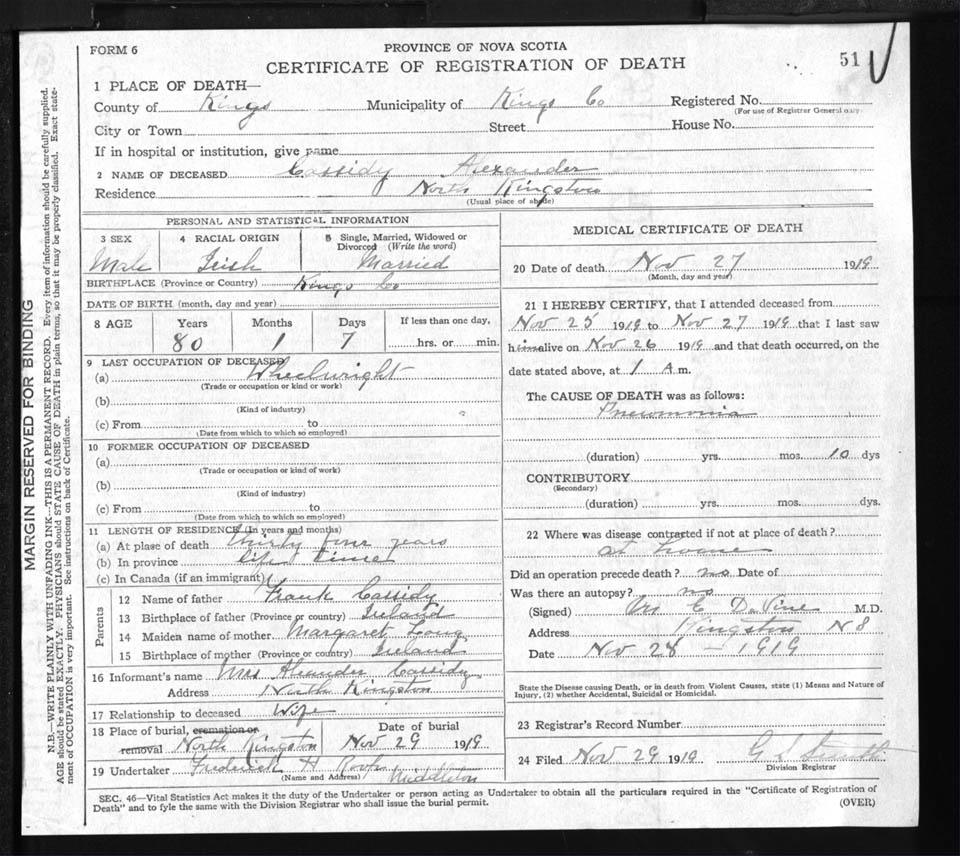 FORM 6
PROVINCE OF NOVA SCOTIA
CERTIFICATE OF REGISTRATION OF DEATH
51
1 PLACE OF DEATH—
County of Kings Municipality of Kings Co Registered No.
(For use of Registrar General only)
City or Town Street House No.
If in hospital or institution, give name
2 NAME OF DECEASED Cassidy Alexander
Residence North Kingston
(Usual place of abode)
PERSONAL AND STATISTICAL INFORMATION
3 SEX 4 RACIAL ORIGIN 5 Single, Married, Widowed or Divorced (Write the word)
Male Irish Married
BIRTHPLACE (Province or Country) Kings Co
DATE OF BIRTH (month, day and year)
8 AGE Years Months Days If less than one day,
80 1 7 hrs. or min.
9 LAST OCCUPATION OF DECEASED
(a) Wheelwright
(Trade or occupation or kind or work)
(b)
(Kind of industry)
(c) From to
(Date from which to which so employed)
10 FORMER OCCUPATION OF DECEASED
(a)
(Trade or occupation or kind of work)
(b)
(Kind of industry)
(c) From to
(Date from which to which so employed)
11 LENGTH OF RESIDENCE (In years and months)
(a) At plase of death thirty four years
(b) In province life time
(c) In Canada (if an immigrant)
Parents
12 Name of father Frank Cassidy
13 Birthplace of father (Province or country) Ireland
14 Maiden name of mother Margaret Long
15 Birthplace of mother (Province or country) Ireland
16 Informant's name Mrs Alexander Cassidy
Address North Kingston
17 Relationship to deceased Wife
18 Place of burial, cremation or Date of burial
removal North Kingston Nov 29 1919
19 Undertaker Frederick H Middleton
(Name and Address)
MEDICAL CERTIFICATE OF DEATH
20 Date of death Nov 27 1919
(Month, day and year)
21 I HEREBY CERTIFY, that I attended deceased from
Nov 25 1919 to Nov 27 1919 that I last saw
him alive on Nov 26 1919 and that death occurred, on the
date stated above, at 1 A m.
The CAUSE OF DEATH was as follows:
Pneumonia
(duration) yrs. mos. 10 dys
CONTRIBUTORY
(Secondary)
(duration) yrs. mos. dys.
22 Where was disease contracted if not at place of death?
at home
Did an operation precede death? no Date of
Was there an autopsy? no
(Signed) M.D.
Address Kingston N S
Date Nov 28 – 1919
State the Disease causing Death, or in death from Violent Causes, state (1) Means and Nature of
Injury, (2) whether Accidental, Suicidal or Homicidal.
23 Registrar's Record Number
24 Filed Nov 29 1919
Division Registrar
SEC. 46—Vital Statistics Act makes it the duty of the Undertaker or person acting as Undertaker to obtain all the particulars required in the "Certificate of Registration of
Death" and to fyle the same with the Division Registrar who shall issue the burial permit.
(OVER)
MARGIN RESERVED FOR BINDING
N.B.—WRITE PLAINLY WITH UNFADING INK—THIS IS A PERMANENT RECORD. Every item of information should be carefully supplied.
AGE should be stated EXACTLY. PHYSICIANS should STATE CAUSE OF DEATH in plain terms, so that it may be properly classified. Exact state-
ment of OCCUPATION is very important. See instructions on back of Certificate.